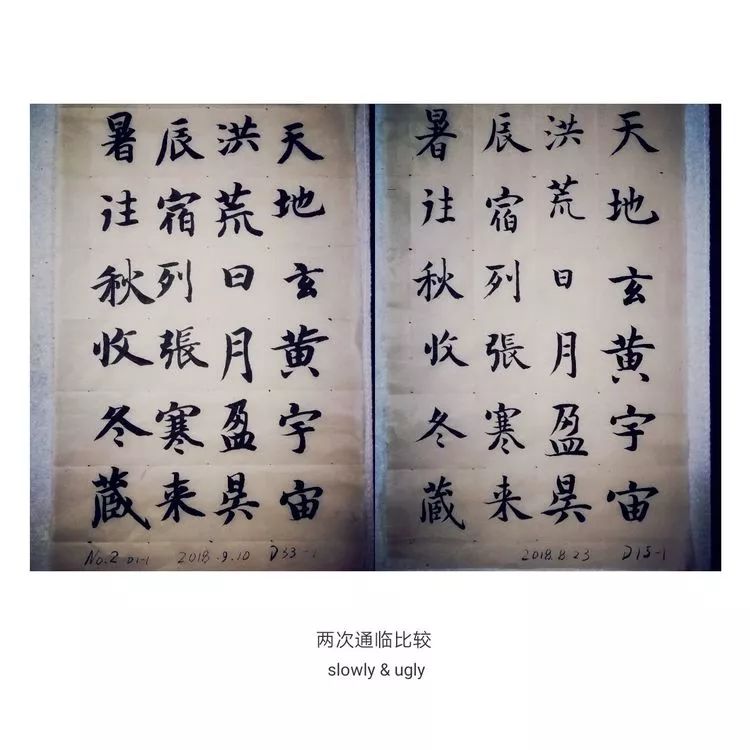 天地玄黄宇宙
洪荒日月盈昃
辰宿列張寒来
暑往秋收冬蔵
No.2 D1-1 2018.9.10 D33-1
天地玄黄宇宙
洪荒日月盈昃
辰宿列張寒来
暑往秋收冬蔵
2018.8.23 D15-1
两次通临比较
slowly & ugly